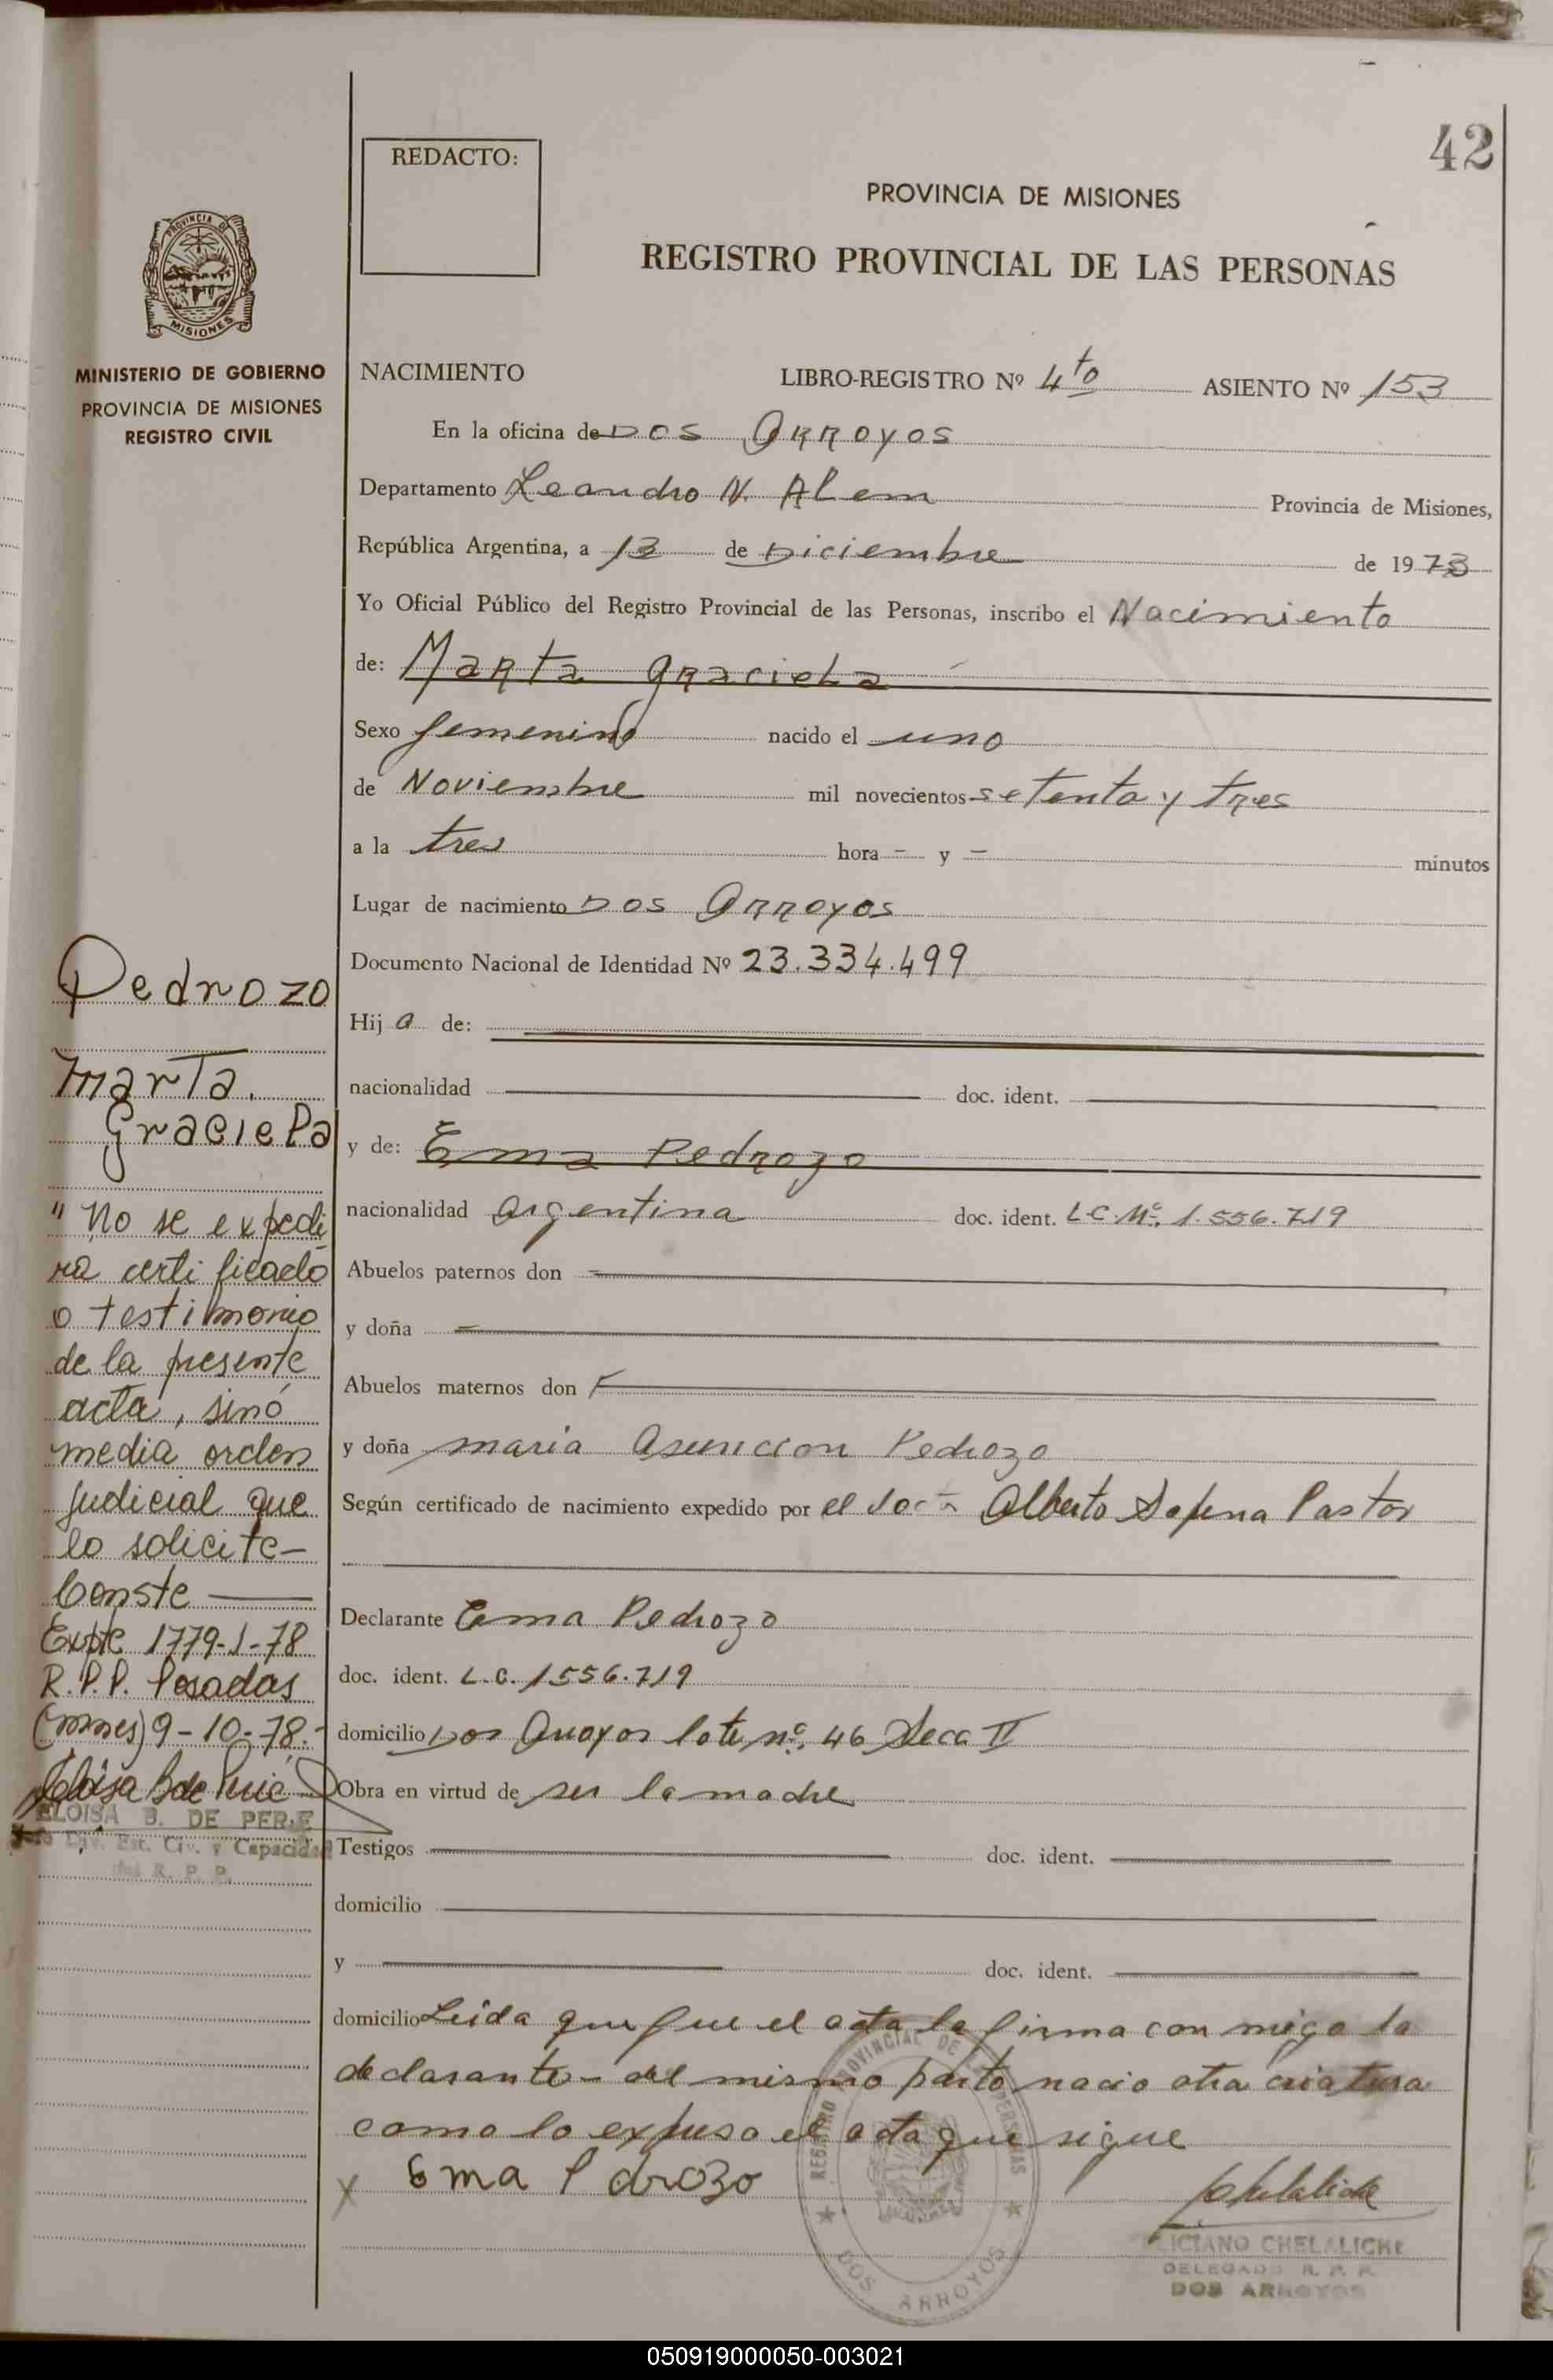 42
REDACTO:
PROVINCIA DE MISIONES
REGISTRO PROVINCIAL DE LAS PERSONAS
PROVINCIA DE
MISIONES
MINISTERIO DE GOBIERNO
PROVINCIA DE MISIONES
REGISTRO CIVIL
NACIMIENTO LIBRO-REGISTRO Nº 4to ASIENTO Nº 153
En la oficina de Dos Arroyos
Departamento Leandro N. Alem Provincia de Misiones,
República Argentina, a 13 de Diciembre de 1973
Yo Oficial Público del Registro Provincial de las Personas, inscribo el Nacimiento
de: Marta Graciela
Sexo femenino nacido el uno
de Noviembre mil novecientos setenta y tres
a la tres hora - y - minutos
Lugar de nacimiento Dos Arroyos
Documento Nacional de Identidad Nº 23.334.499
Hij a de:
nacionalidad doc. ident.
y de: Ema Pedrozo
nacionalidad Argentina doc. ident. L.C. Nº. 1.556.719
Abuelos paternos don
y doña
Abuelos maternos don
y doña maria Asuncion Pedrozo
Según certificado de nacimiento expedido por el Alberto Pastor
Declarante Ema Pedrozo
doc. ident. L.C. 1556.719
domicilio Dos Arroyos lote nº. 46 Secc II
Obra en virtud de ser la madre
Testigos doc. ident.
domicilio
y doc. ident.
domicilio Leida que fue el acta la firma con migo la
declarante - del mismo parto nacio otra criatura
como lo expresa el acta que sigue
x Ema Pdrozo
Pedrozo
Marta
Graciela
"No se expedi
ra certificado
o testimonio
de la presente
acta, sinó
media orden
judicial que
lo solicite-
Conste
Expte 1779-J-78
R.P.P. Posadas
(mnes) 9-10-78.-
ELOISA B. DE PERIE
Jefe Div. Est. Civ. y Capacidad
del R. P. P.
REGISTRO PROVINCIAL DE LAS PERSONAS
DOS ARROYOS
LICIANO CHELALICHE
DELEGADO R. P. P.
DOS ARROYOS
050919000050-003021